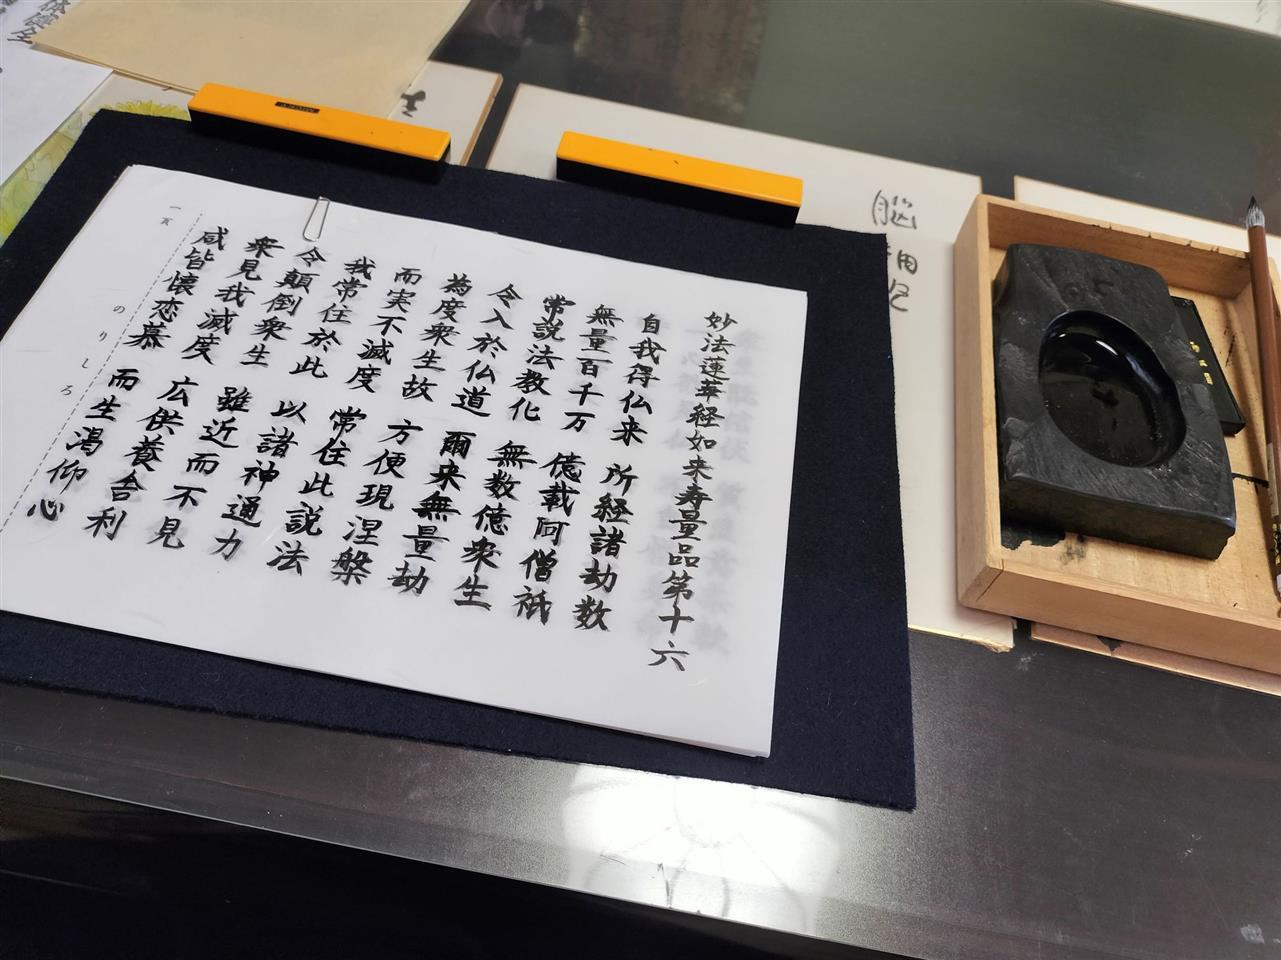 妙法蓮華経如来寿量品第十六
自我得仏来 所経諸劫数
無量百千万 億載阿僧祇
常説法教化 無数億衆生
令入於仏道 爾来無量劫
為度衆生故 方便現涅槃
而実不滅度 常住此説法
我常住於此 以諸神通力
令顛倒衆生 雖近而不見
衆見我滅度 広供養舎利
咸皆懐恋慕 而生渇仰心
のりしろ
一頁
脳